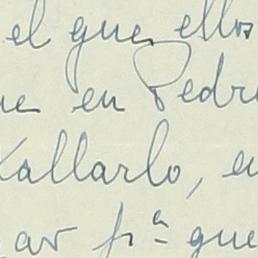 el que ellos
en Pedr
hallarlo, e
ar pª que